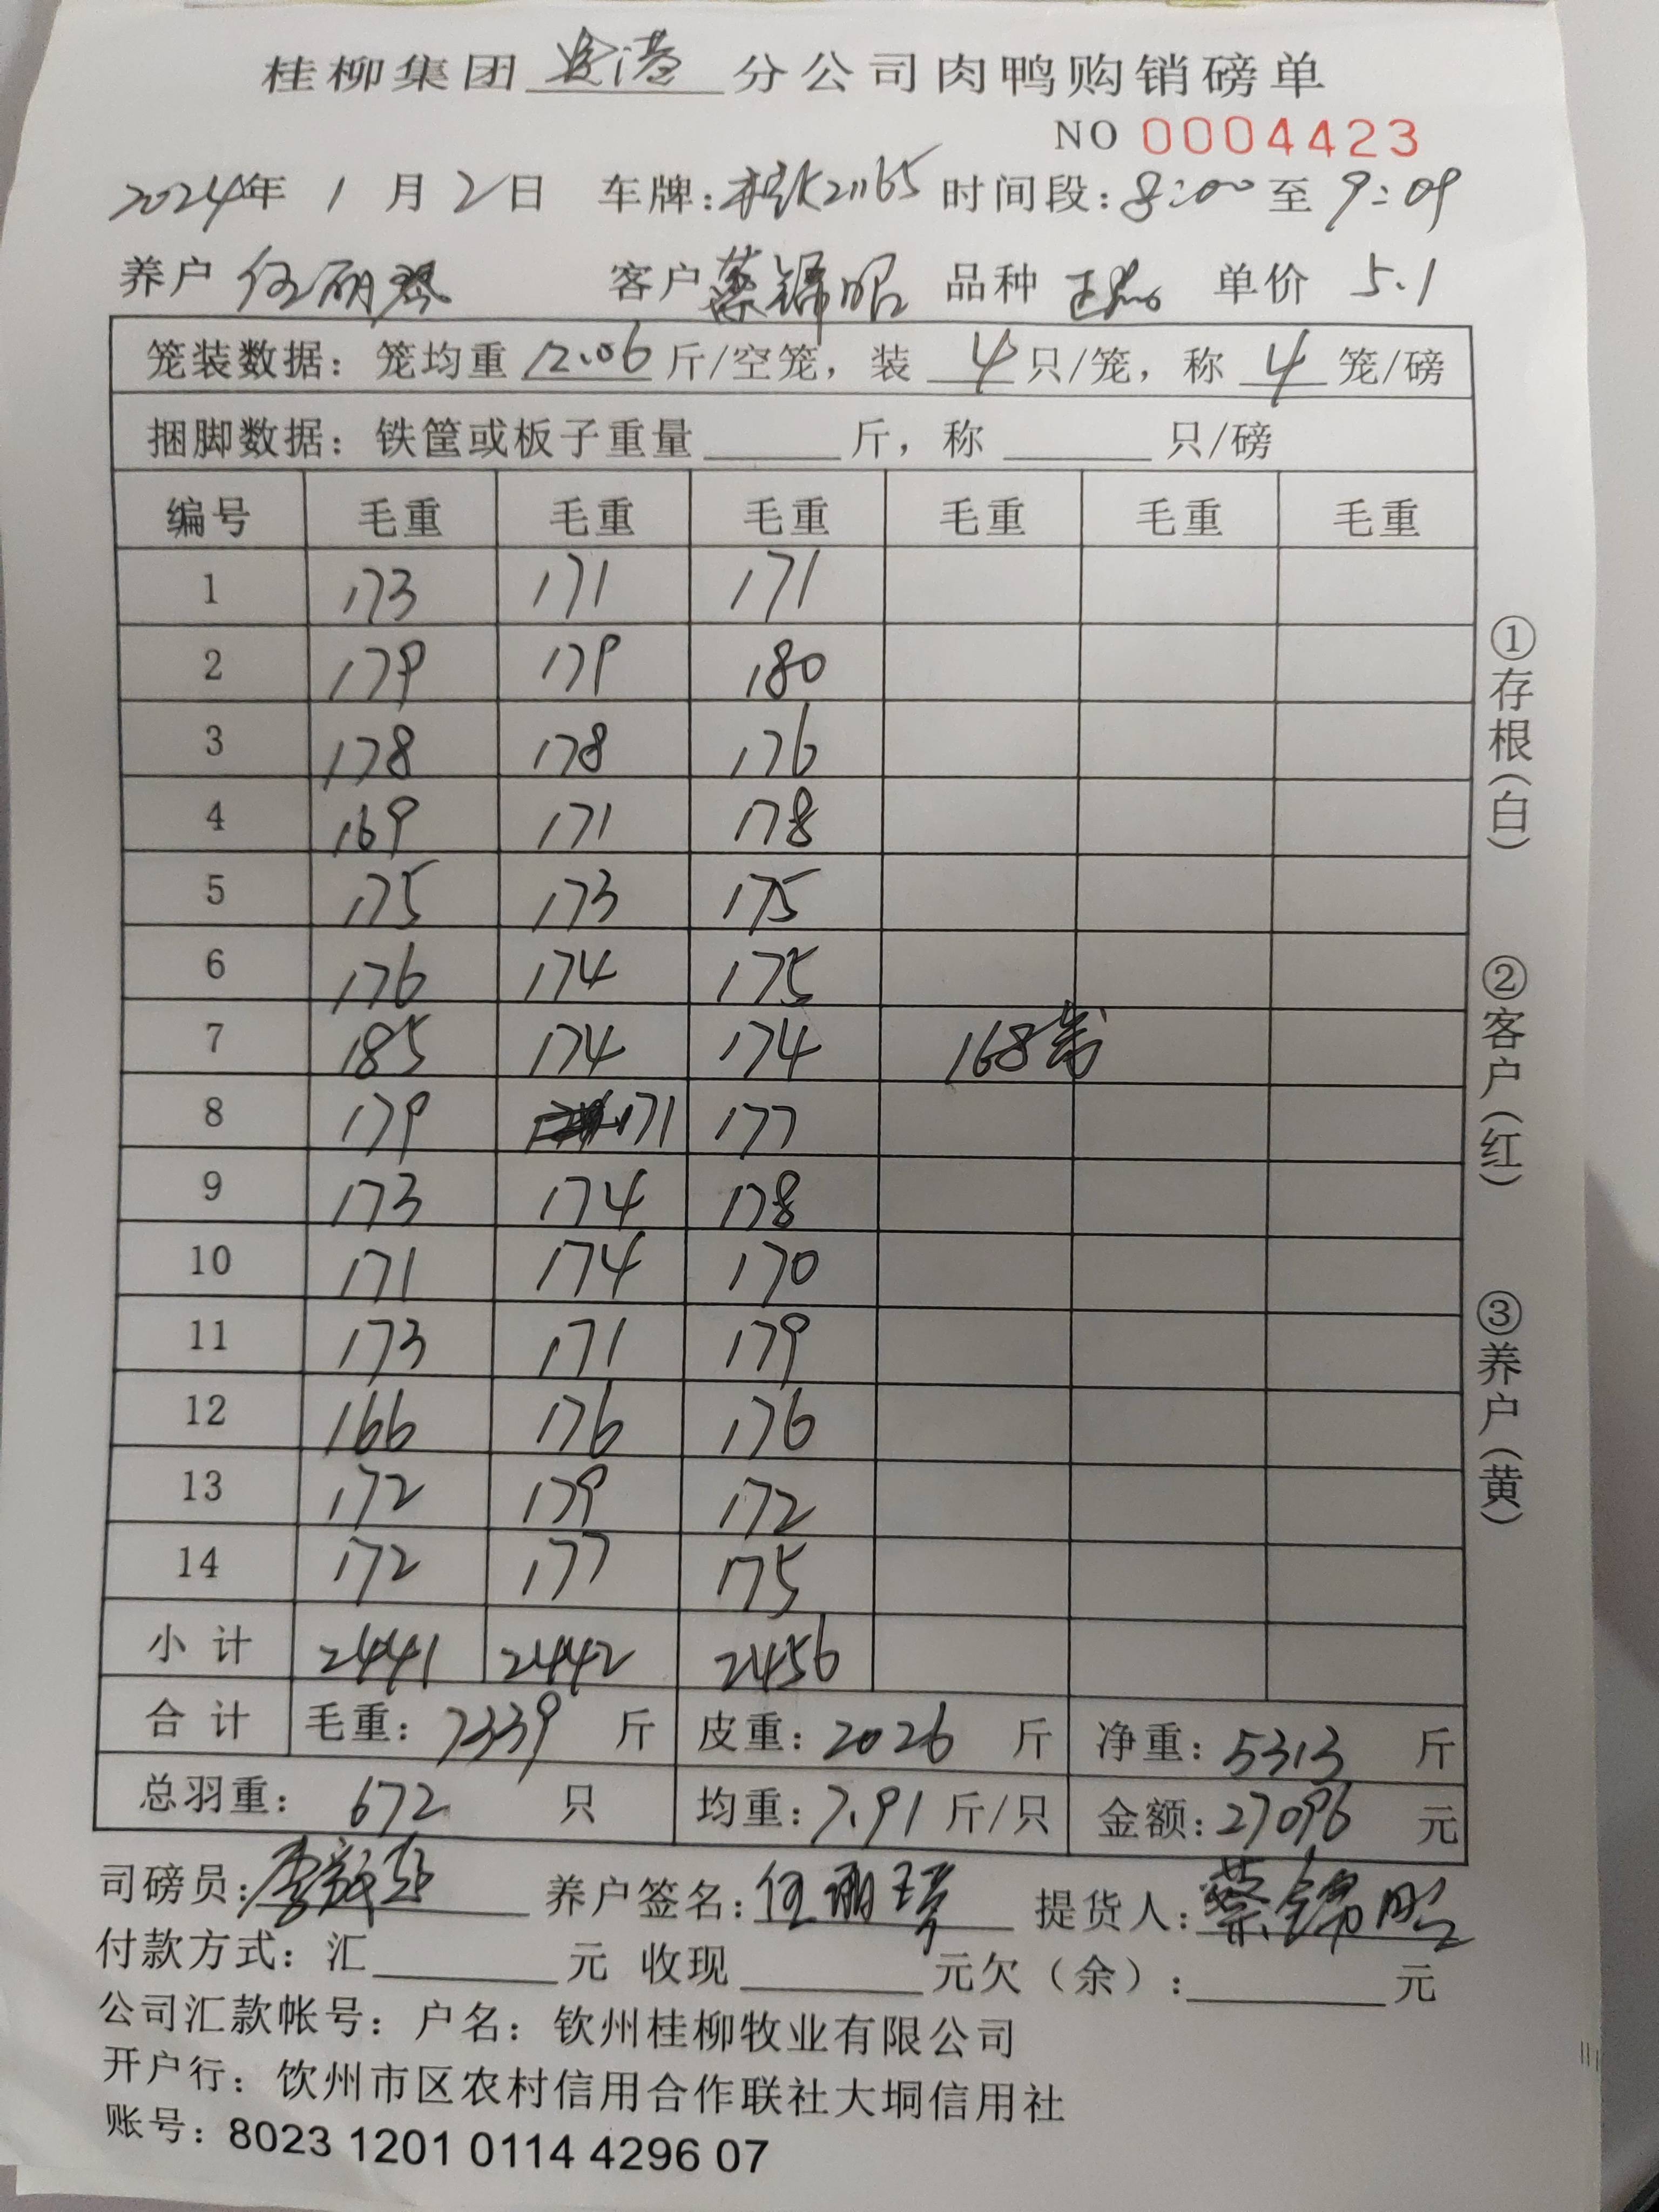 桂柳集团 港 分公司肉鸭购销磅单
NO 0004423
2024年 1 月 2 日 车牌: 21165 时间段: 8:00 至 9:09
养户 何 客户 蔡锦昭 品种 单价 5.1
笼装数据: 笼均重 12.06 斤/空笼, 装 4 只/笼, 称 4 笼/磅
捆脚数据: 铁筐或板子重量 斤, 称 只/磅
编号 毛重 毛重 毛重 毛重 毛重 毛重
1 173 171 171
2 179 179 180
3 178 178 176
4 169 171 178
5 175 173 175
6 176 174 175
7 185 174 174 168
8 179 171 177
9 173 174 178
10 171 174 170
11 173 171 179
12 166 176 176
13 172 179 172
14 172 177 175
小计 2441 2442 2456
合计 毛重: 7339 斤 皮重: 2026 斤 净重: 5313 斤
总羽重: 672 只 均重: 7.91 斤/只 金额: 27096 元
司磅员: 李 养户签名: 何 提货人: 蔡锦昭
付款方式: 汇 元 收现 元欠(余): 元
公司汇款帐号: 户名: 钦州桂柳牧业有限公司
开户行: 饮州市区农村信用合作联社大垌信用社
账号: 8023 1201 0114 4296 07
①存根(白)
②客户(红)
③养户(黄)